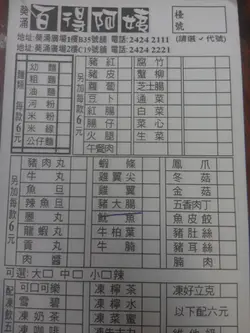 葵涌 百得阿嬌
檯號
(請選✓代號)
地址:葵涌廣場2樓B35號舖 電話:2424 2111
地址:葵涌廣場2樓C19號舖 電話:2424 2221
麵類 每款6元
幼麵
粗麵
油麵
河粉
米粉
米線
公仔麵
另加每款6元
豬紅
豬皮
蘿蔔
豆卜
紅腸
腸仔
火腿
午餐肉
腐竹
蟹柳
芝士腸
通菜
白菜
菜心
生菜
另加每款6元
豬肉丸
牛丸
魚旦
辣魚旦
墨丸
龍丸
貢丸
肉醬
蝦條
雞翼尖
雞翼
豬大腸
魷魚
牛柏葉
牛肚
豬肚
鳳爪
冬菇
金菇
五香肉丁
魚皮餃
豬耳絲
豬耳
腩肉
可選 大□ 中□ 小□辣
可口可樂
雪碧
凍奶茶
凍檸茶
凍檸水
凍菜蜜
凍好立克
以下配六元